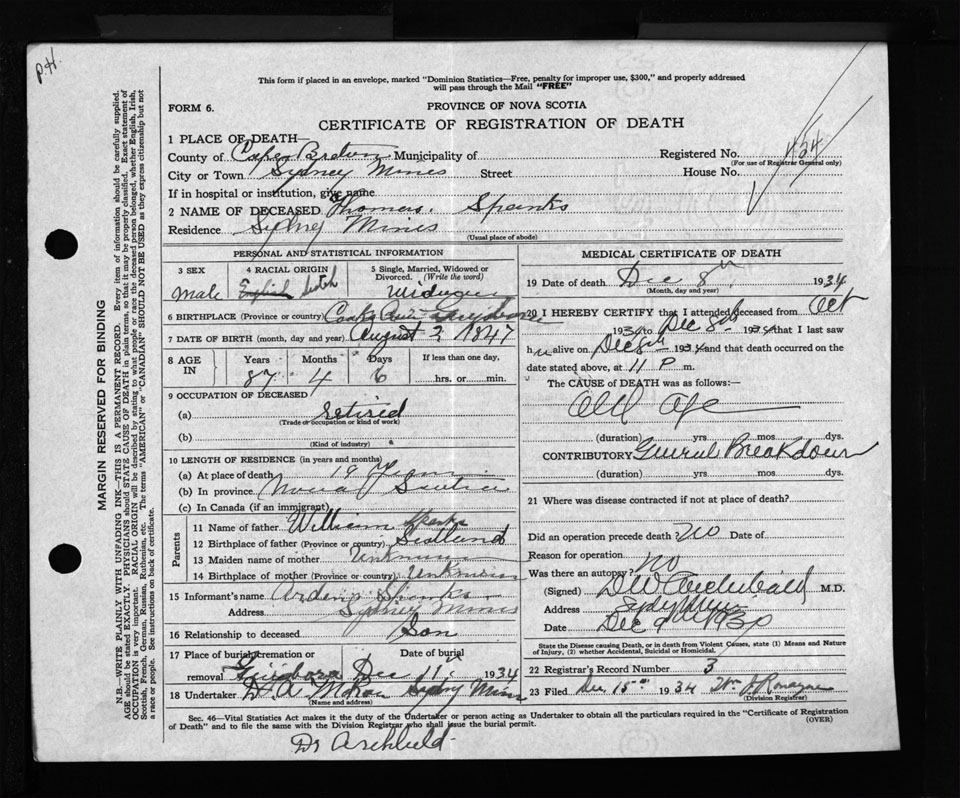 P.H.
This form if placed in an envelope, marked "Dominion Statistics—Free, penalty for improper use, $300," and properly addressed
will pass through the Mail "FREE"
FORM 6.
PROVINCE OF NOVA SCOTIA
CERTIFICATE OF REGISTRATION OF DEATH
1 PLACE OF DEATH—
County of Cape Breton Municipality of Registered No. 434
(For use of Registrar General only)
City or Town Sydney Mines Street House No.
If in hospital or institution, give name
2 NAME OF DECEASED Thomas Spanks
Residence Sydney Mines
(Usual place of abode)
PERSONAL AND STATISTICAL INFORMATION
3 SEX Male
4 RACIAL ORIGIN English Scotch
5 Single, Married, Widowed or Divorced. (Write the word)
6 BIRTHPLACE (Province or country)
7 DATE OF BIRTH (month, day and year) August 2 1847
8 AGE IN Years Months Days If less than one day,
87 4 6 hrs. or min.
9 OCCUPATION OF DECEASED
(a) retired
(Trade or occupation or kind of work)
(b)
(Kind of industry)
10 LENGTH OF RESIDENCE (in years and months)
(a) At place of death 19 Years
(b) In province Nova Scotia
(c) In Canada (if an immigrant)
Parents
11 Name of father William Spanks
12 Birthplace of father (Province or country) Scotland
13 Maiden name of mother Unknown
14 Birthplace of mother (Province or country) Unknown
15 Informant's name Spanks
Address Sydney Mines
16 Relationship to deceased Son
17 Place of burial cremation or removal Date of burial
Dec 11 1934
18 Undertaker Sydney Mines
(Name and address)
MEDICAL CERTIFICATE OF DEATH
19 Date of death Dec 8th 1934
(Month, day and year)
20 I HEREBY CERTIFY that I attended deceased from Oct
1934 to Dec 8th 1934 that I last saw
him alive on Dec 8th 1934 and that death occurred on the
date stated above, at 11 P m.
The CAUSE of DEATH was as follows:—
Old Age
(duration) yrs mos dys.
CONTRIBUTORY General Breakdown
(duration) yrs. mos. dys.
21 Where was disease contracted if not at place of death?
Did an operation precede death? No Date of
Reason for operation
Was there an autopsy? No
(Signed) DW Archibald M.D.
Address Sydney Mines
Date Dec 9
State the Disease causing Death, or in death from Violent Causes, state (1) Means and Nature
of Injury, (2) whether Accidental, Suicidal or Homicidal.
22 Registrar's Record Number 3
23 Filed Dec 15th 1934
(Division Registrar)
Sec. 46—Vital Statistics Act makes it the duty of the Undertaker or person acting as Undertaker to obtain all the particulars required in the "Certificate of Registration
of Death" and to file the same with the Division Registrar who shall issue the burial permit. (OVER)
Dr Archibald
MARGIN RESERVED FOR BINDING
N.B.—WRITE PLAINLY WITH UNFADING INK—THIS IS A PERMANENT RECORD. Every item of information should be carefully supplied.
AGE should be stated EXACTLY. PHYSICIANS should STATE CAUSE OF DEATH in plain terms, so that it may be properly classified. Exact statement of
OCCUPATION is very important. RACIAL ORIGIN will be described by stating to what people or race the deceased person belonged, whether English, Irish,
Scottish, French, German, Russian, Ruthenian, etc. The terms "AMERICAN" or "CANADIAN" SHOULD NOT BE USED as they express citizenship but not
a race or people. See instructions on back of certificate.